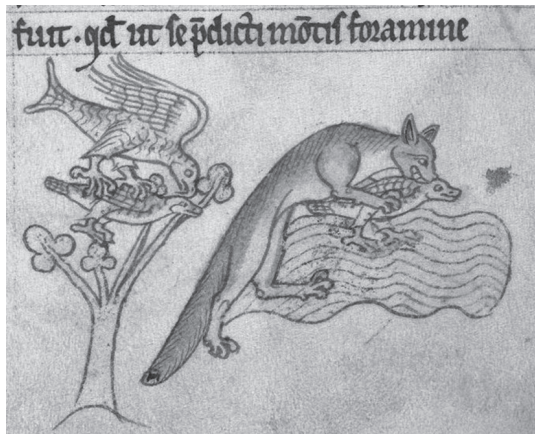 fuit · qđ ut se p̄dicti mōtis foramine